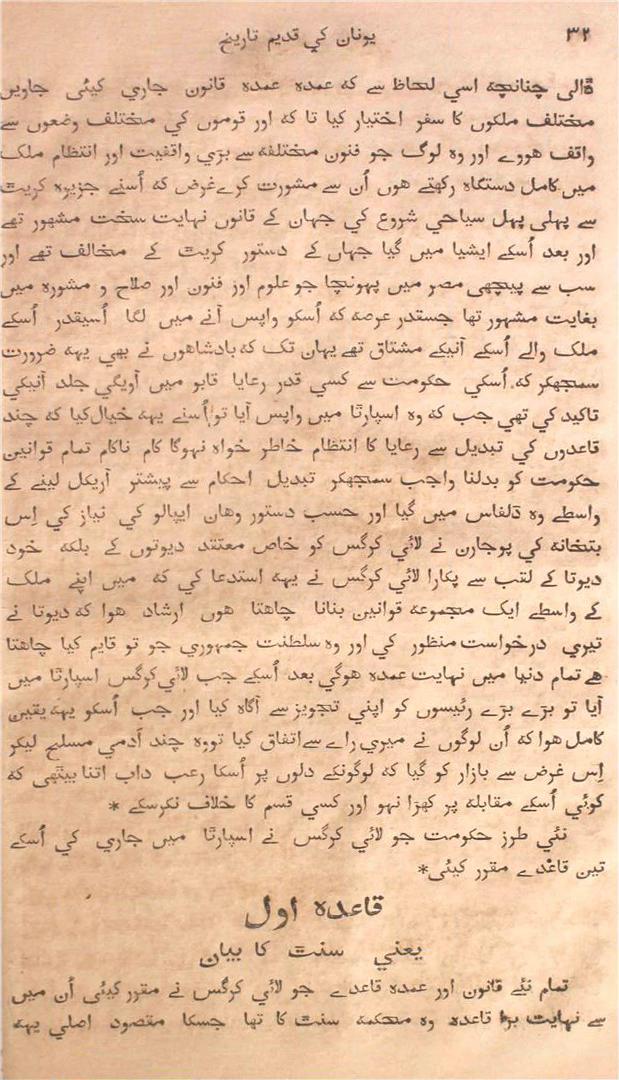 ۳۲ یونان کي قدیم تاریخ
ڈالی چنانچه اسي لحاظ سے که عمدہ عمدہ قانون جاري کیئی جاویں
مختلف ملکوں کا سفر اختیار کیا تا که اور قوموں کي مختلف وضعوں سے
واقف هووے اور وہ لوگ جو فنون مختلفه سے بڑي واقفیت اور انتظام ملک
میں کامل دستگاہ رکھتے هوں اُن سے مشورت کرے غرض که اُسنے جزیرہ کریت
سے پہلی پہل سیاحي شروع کي جہان کے قانوں نہایت سخت مشہور تھے
اور بعد اُسکے ایشیا میں گیا جہاں کے دستور کریت کے مخالف تھے اور
سب سے پیچھی مصر میں پہونچا جو علوم اور فنون اور صلاح و مشورہ میں
بغایت مشہور تھا جستدر عرصه که اُسکو واپس آنے میں لگا اُسیقدر اُسکے
ملک والے اُسکے آنیکے مشتاق تھے یہان تک که بادشاهوں نے بھي یہه ضرورت
سمجھکر که اُسکي حکومت سے کسي قدر رعایا قابو میں آویگي جلد آنیکي
تاکید کي تھي جب که وہ اسپارٹا میں واپس آیا تو اُسنے یہه خیال کیا که چند
قاعدوں کي تبدیل سے رعایا کا انتظام خاطر خواہ نہوگا کام ناکام تمام قوانین
حکومت کو بدلنا واجب سمجھکر تبدیل احکام سے پیشتر آریکل لینے کے
واسطے وہ ڈلفاس میں گیا اور حسب دستور وهان ایپالو کي نیاز کي اِس
بتخانه کي پوجارن نے لائي کرگس کو خاص معتقد دیوتوں کے بلکه خود
دیوتا کے لقب سے پکارا لائي کرگس نے یہه استدعا کي که میں اپنے ملک
کے واسطے ایک مجموعه قوانین بنانا چاهتا هوں ارشاد هوا که دیوتا نے
تیري درخواست منظور کي اور وہ سلطنت جمہوري جو تو قایم کیا چاهتا
هے تمام دنیا میں نہایت عمدہ هوگي بعد اُسکے جب لائي کرگس اسپارٹا میں
آیا تو بڑے بڑے رئیسوں کو اپني تجویز سے آگاہ کیا اور جب اُسکو یہه یقین
کامل هوا که اُن لوگوں نے میري راے سے اتفاق کیا تو وہ چند آدمي مسلح لیکر
اِس غرض سے بازار کو گیا که لوگونکے دلوں پر اُسکا رعب داب اتنا بیٹھی که
کوئي اُسکے مقابله پر کھڑا نہو اور کسي قسم کا خلاف نکرسکے *
نئي طرز حکومت جو لائي کرگس نے اسپارٹا میں جاري کي اُسکے
تین قاعدے مقرر کیئی*
قاعدہ اول
یعني سنت کا بیان
تمام نئے قانون اور عمدہ قاعدے جو لائي کرگس نے مقرر کیئی اُن میں
سے نہایت بڑا قاعدہ وہ محکمه سنت کا تھا جسکا مقصود اصلي یہه